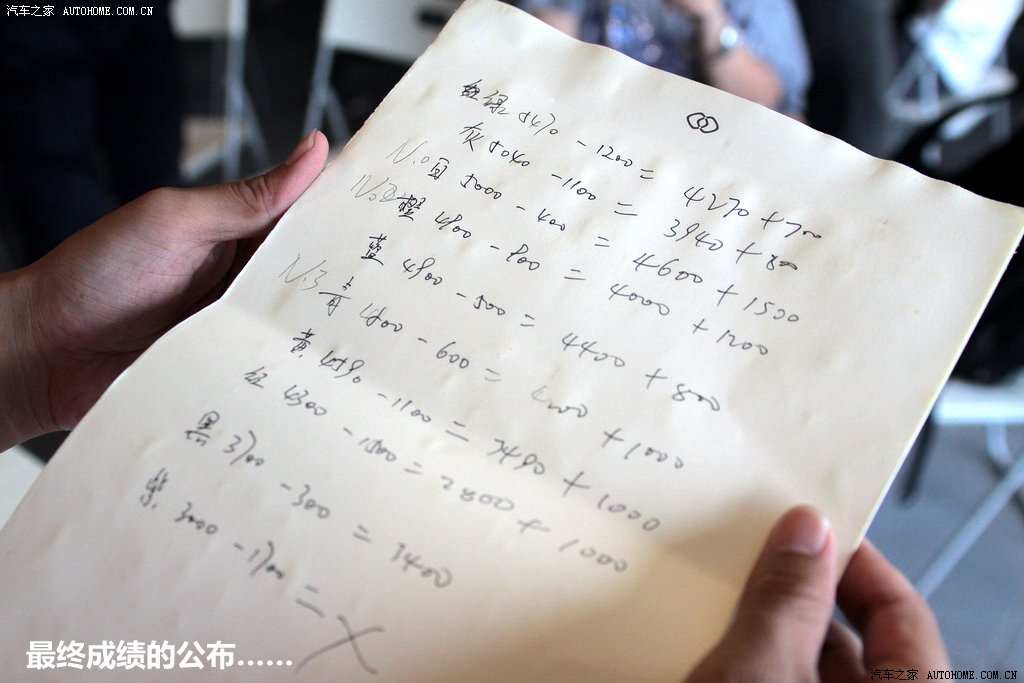 汽车之家 AUTOHOME.COM.CN
红绿 5470 - 1200 = 4270 + 700
灰 5040 - 1100 = 3940 + 800
N.O 白 5000 - 400 = 4600 + 1500
No2 橙 4800 - 800 = 4000 + 1200
蓝 4900 - 500 = 4400 + 800
N.3 青 4800 - 600 = + 1000
黄 4590 - 1100 = 3490 + 1000
红 4300 - 1500 = 2800 + 1000
黑 3700 - 300 = 3400
紫 3000 - 1700 = X
最终成绩的公布......
汽车之家 AUTOHOME.COM.CN